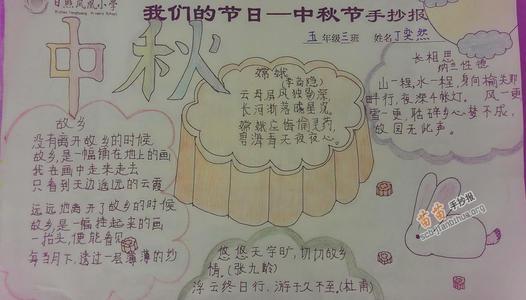 日照凤凰小学
我们的节日—中秋节手抄报
五年级三班 姓名丁奕然
中秋
故乡
没有离开故乡的时候
故乡,是一幅铺在地上的画
我在画中走来走去
只看到天边遥远的云霞
远远地离开了故乡的时候
故乡,是一幅挂起来的画
一抬头,便能看见
每当月下,透过一层薄薄的纱
嫦娥
(李商隐)
云母屏风烛影深
长河渐落晓星沉
嫦娥应悔偷灵药
碧海青天夜夜心。
长相思
纳兰性德
山一程,水一程,身向榆关那
畔行,夜深千帐灯。 风一更
雪一更,聒碎乡心梦不成,
故园无此声。
悠悠天宇旷,切切故乡
情。(张九龄)
浮云终日行,游子久不至。(杜甫)
苗苗手抄报